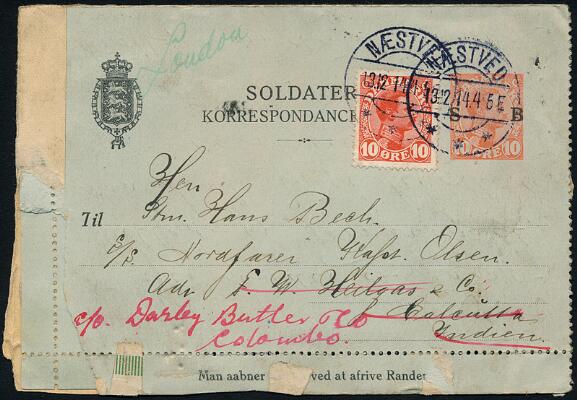 London
NÆSTVED
13.12.14.4-5E
NÆSTVED
13.12.14.4-5E
SOLDATER
KORRESPONDANCE
S B
10 ØRE 10
10 ØRE 10
Til
Herr
Stm. Hans Bech.
S/S. Nordfarer Kapt. Olsen.
Adr. & Co.
Calcutta
c/o. Darley Butler & Co
Colombo.
Indien.
Man aabner ved at afrive Randen